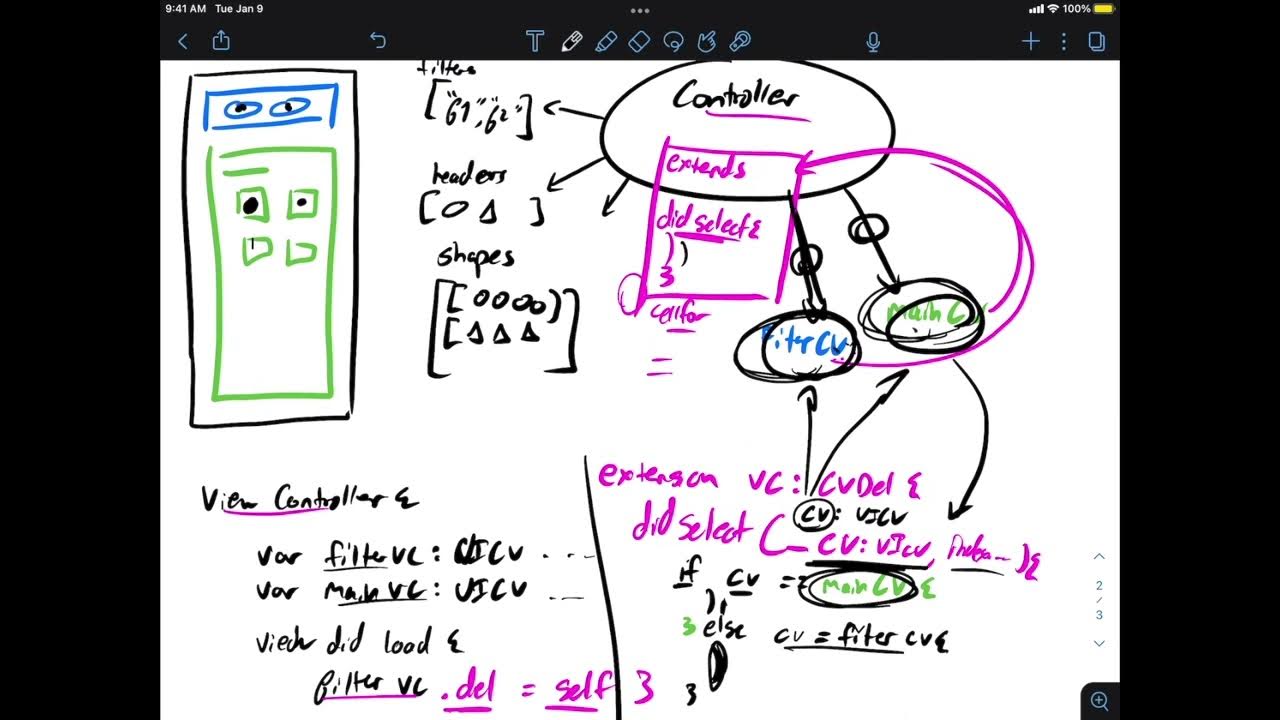 9:41 AM Tue Jan 9
100%
filters
["G1", "G2"]
headers
[O Δ ]
shapes
[[O O O O]
[Δ Δ Δ]]
Controller
extends
did select {
}
cellfor
=
Filter CV
main CV
View Controller {
var filter VC: UICV ....
var main VC: UICV ....
View did load {
filter VC .del = self }
extension VC: CVDel {
CV: UICV
did select (_ CV: UICV, ){
if CV == main CV {
} else CV = filter CV {
}
2
/
3